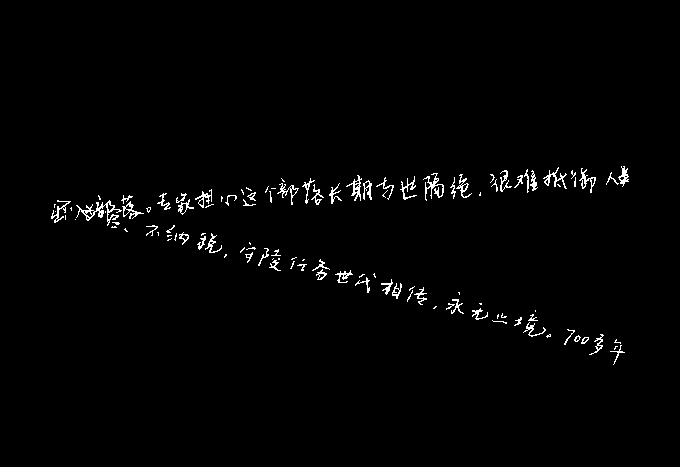 部落。专家担心这个部落长期与世隔绝，很难抵御人
、不纳税，守陵任务世代相传，永无止境。700多年